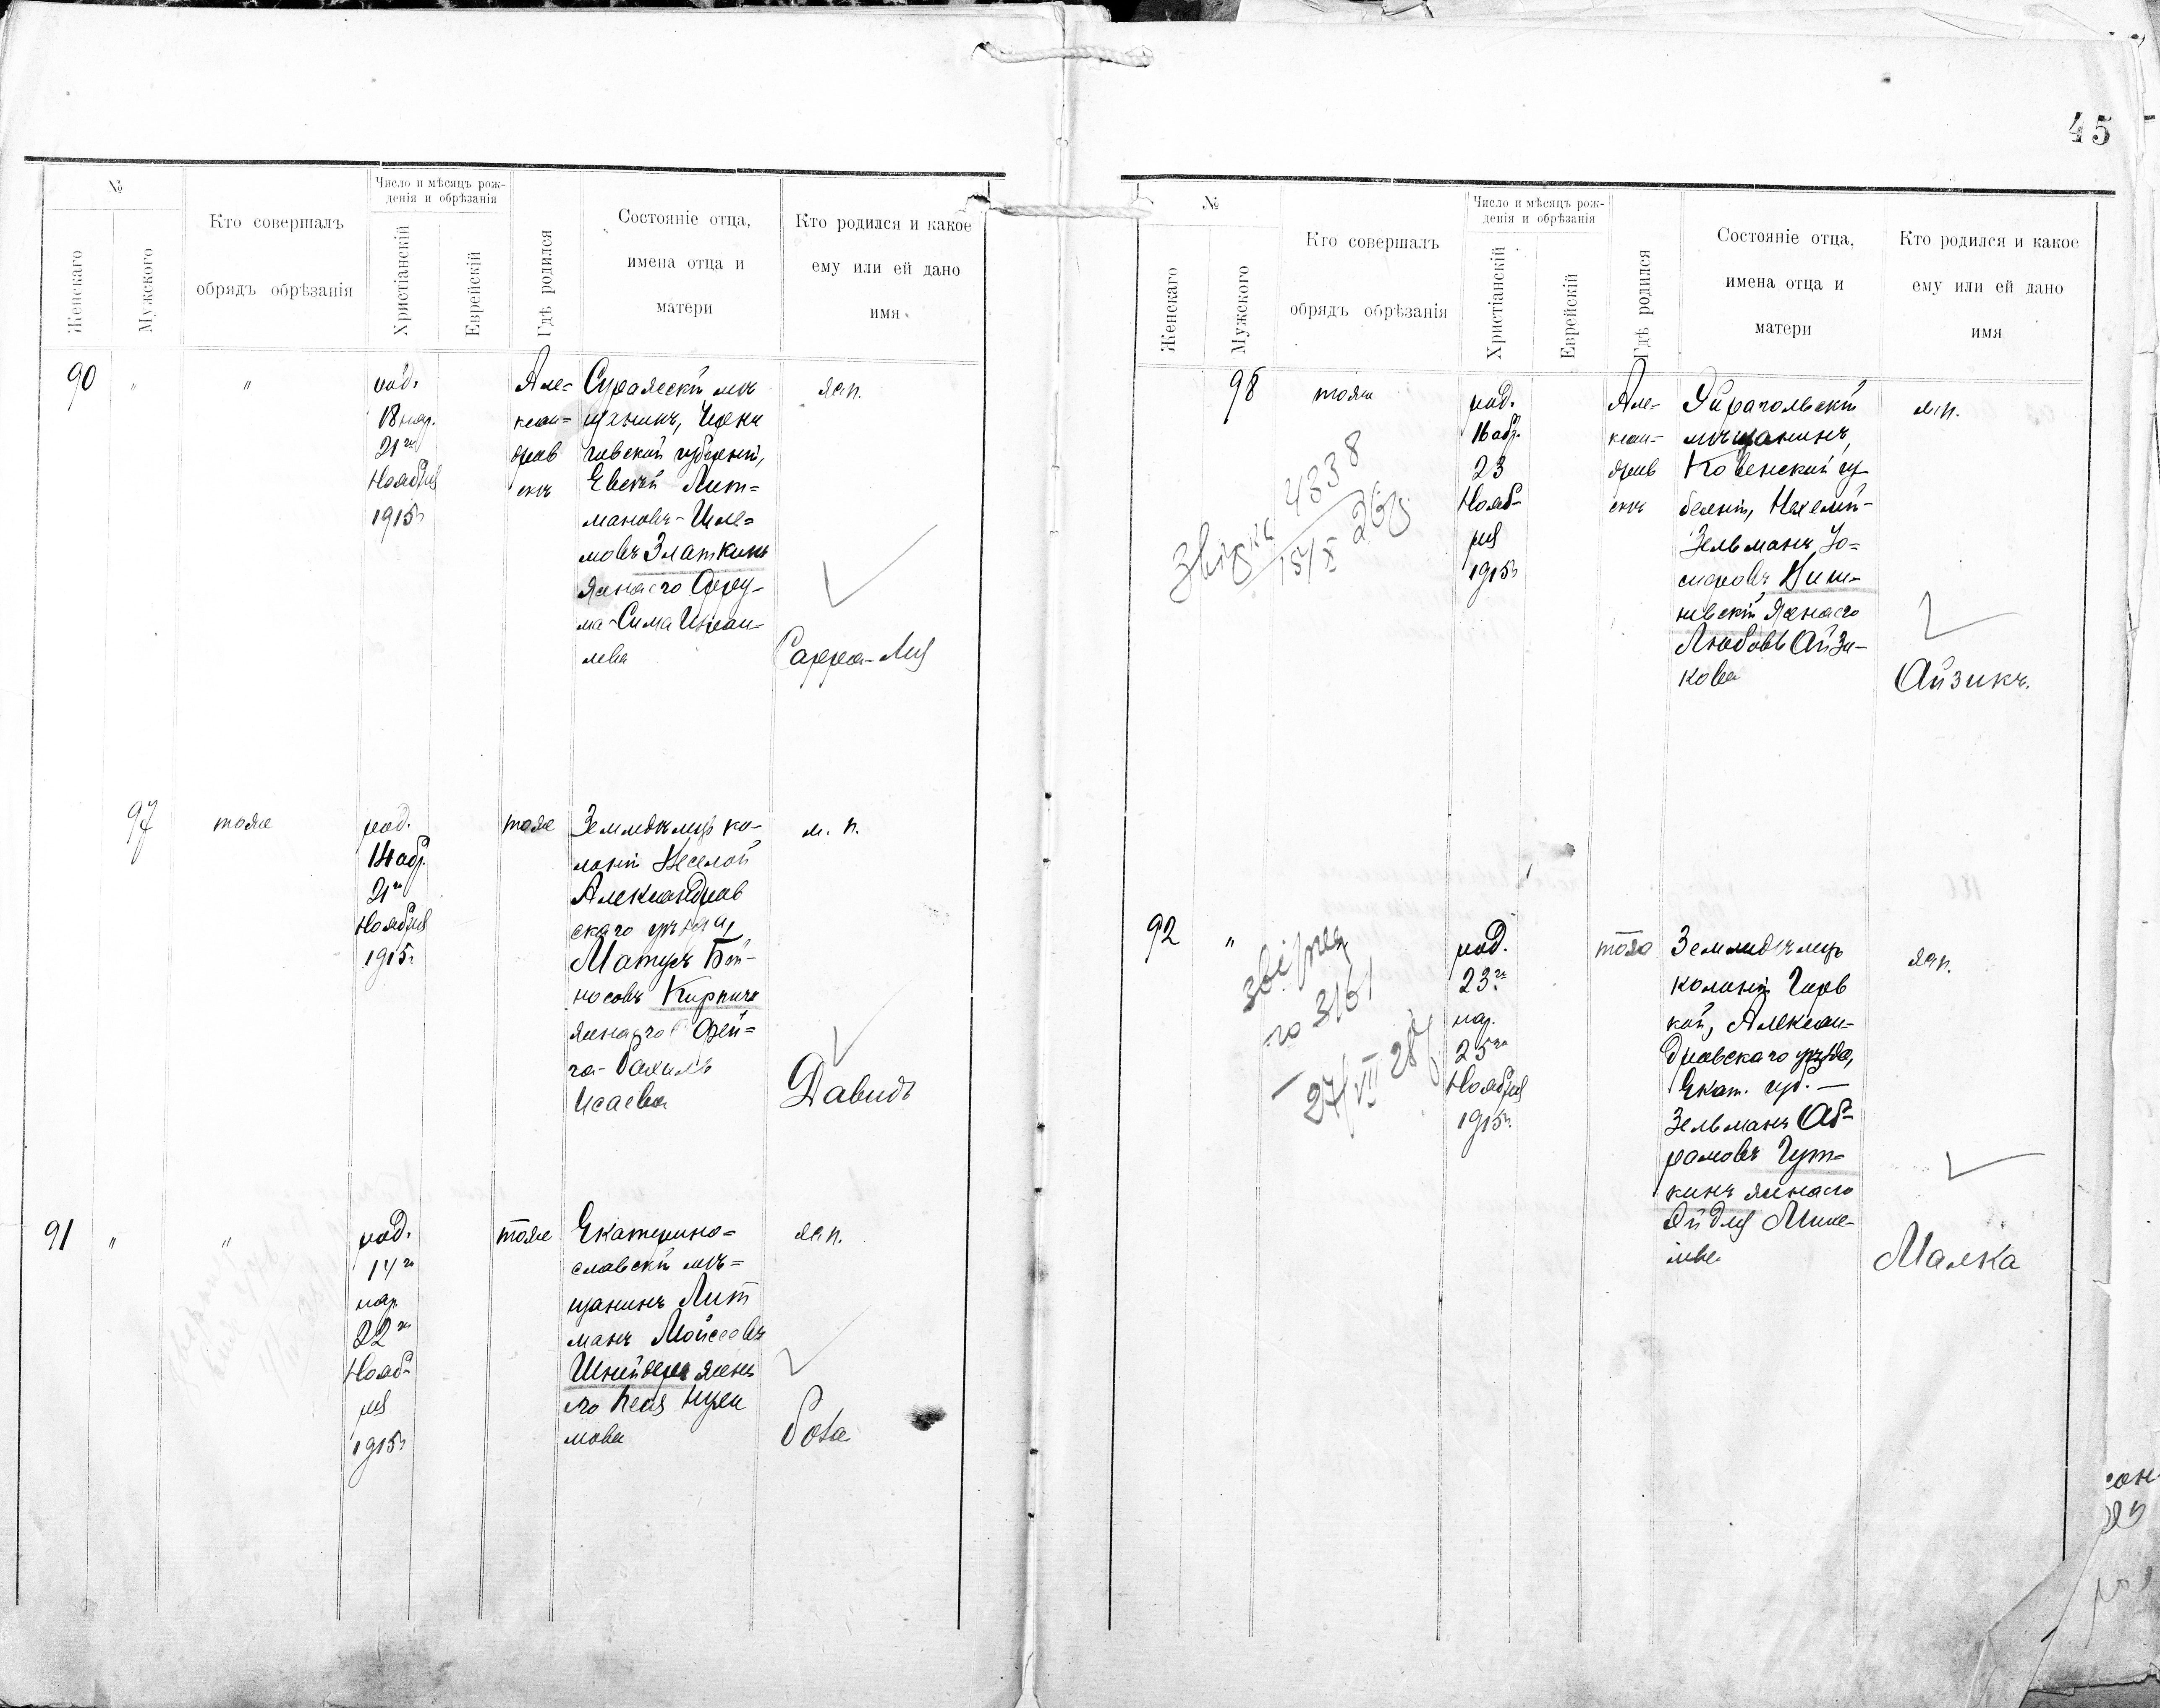 45
№
Женскаго
Мужского
Кто совершалъ
обрядъ обрѣзанія
Число и мѣсяцъ рож-
денія и обрѣзанія
Христіанскій
Еврейскій
Гдѣ родился
Состояніе отца,
имена отца и
матери
Кто родился и какое
ему или ей дано
имя
90
"
"
род.
18 нар.
21го
Ноября
1915г
Але=
ксан=
дров
скъ
Суражскій мѣ
щанинъ, Черни
говской губерніи,
Евсѣй Лит=
мановъ-Шле=
мовъ Златкинъ
жена его Фру-
ма-Сима Израи-
лева
жеп.
Сарра-Лея
97
тоже
род.
14 обр.
21го
Ноября
1915г
тоже
Земледѣлецъ ко-
лоніи Веселой
Александров
скаго уѣзда,
Матусъ Бей-
носовъ Кирпичъ
жена его Фей-
га-Рахиль
Исаева
м. п.
Давидъ
91
"
"
род.
14го
нар.
22го
Нояб-
ря
1915г
тоже
Екатерино=
славскій мѣ=
щанинъ Лит
манъ Мойсеевъ
Шнейдеръ жена
его Песя
мова
жеп.
Роза
№
Женскаго
Мужского
Кто совершалъ
обрядъ обрѣзанія
Число и мѣсяцъ рож-
денія и обрѣзанія
Христіанскій
Еврейскій
Гдѣ родился
Состояніе отца,
имена отца и
матери
Кто родился и какое
ему или ей дано
имя
98
тоже
род.
16 обр.
23
Нояб-
ря
1915г
Але-
ксан-
дров
скъ
Эйрагольскій
мѣщанинъ,
Ковенской гу
берніи, Нехемій-
Зельманъ
Виш-
невскій жена его
Любовь Айзи-
кова
м.п.
Айзикъ.
4838
15/X 26
92
"
род.
23го
нар.
25го
Ноября
1915г.
тоже
Земледѣлецъ
колоніи Горь
кой, Алексан-
дровскаго уѣзда,
Екат. губ. —
Зельманъ Аб-
рамовъ Гут-
кинъ жена его
Эйдля Михе-
лева
жеп.
Малка
3161
27/VII 28